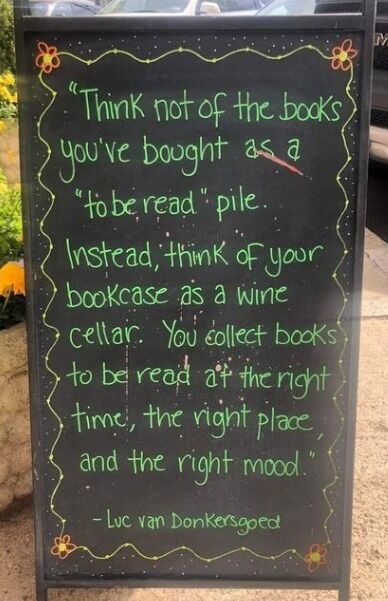 "Think not of the books
you've bought as a
"to be read" pile.
Instead, think of your
bookcase as a wine
cellar. You collect books
to be read at the right
time, the right place,
and the right mood."
- Luc van Donkersgoed